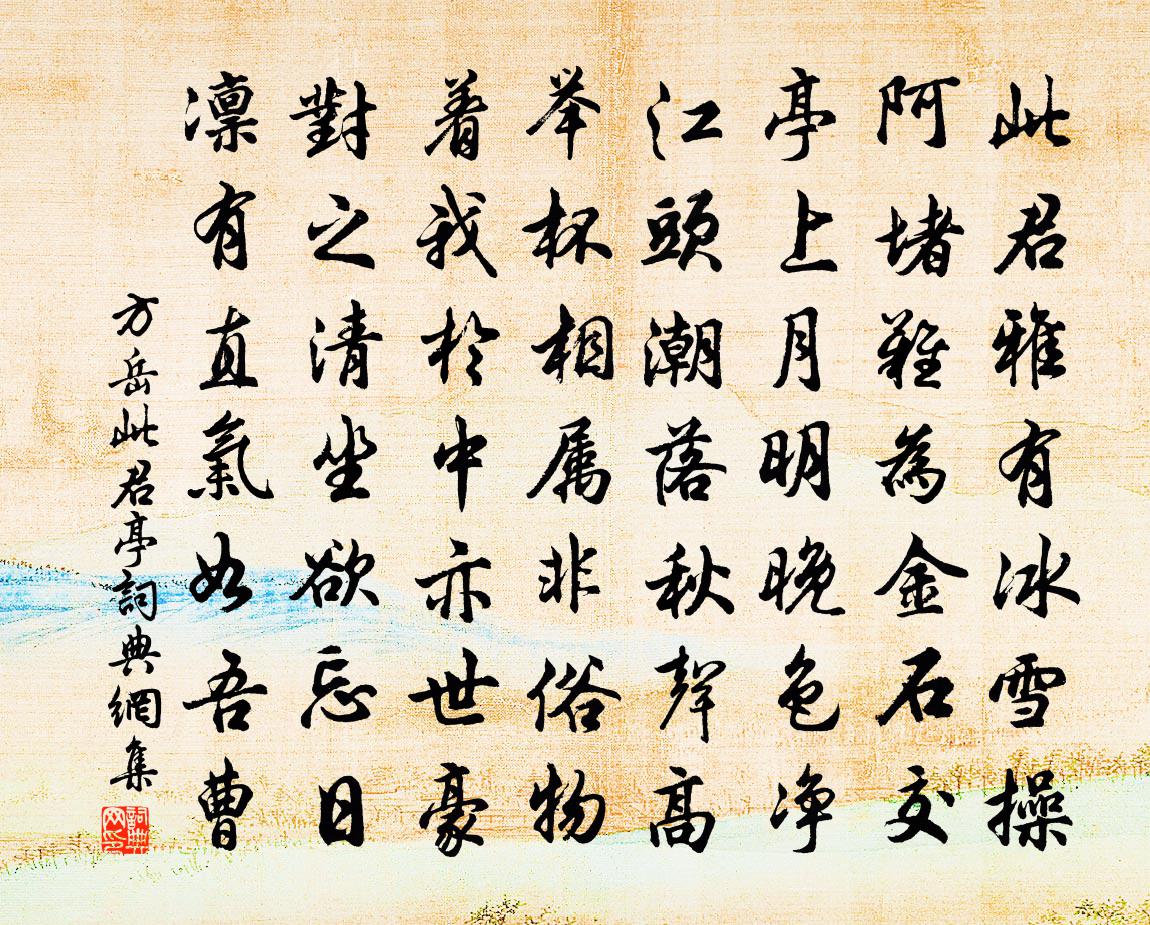 此君雅有冰雪操
阿堵難為金石交
亭上月明晚色净
江頭潮落秋聲高
举杯相属非俗物
着我於中亦世豪
對之清坐欲忘日
凛有直氣如吾曹
方岳此君亭詞典網集
詞典网印